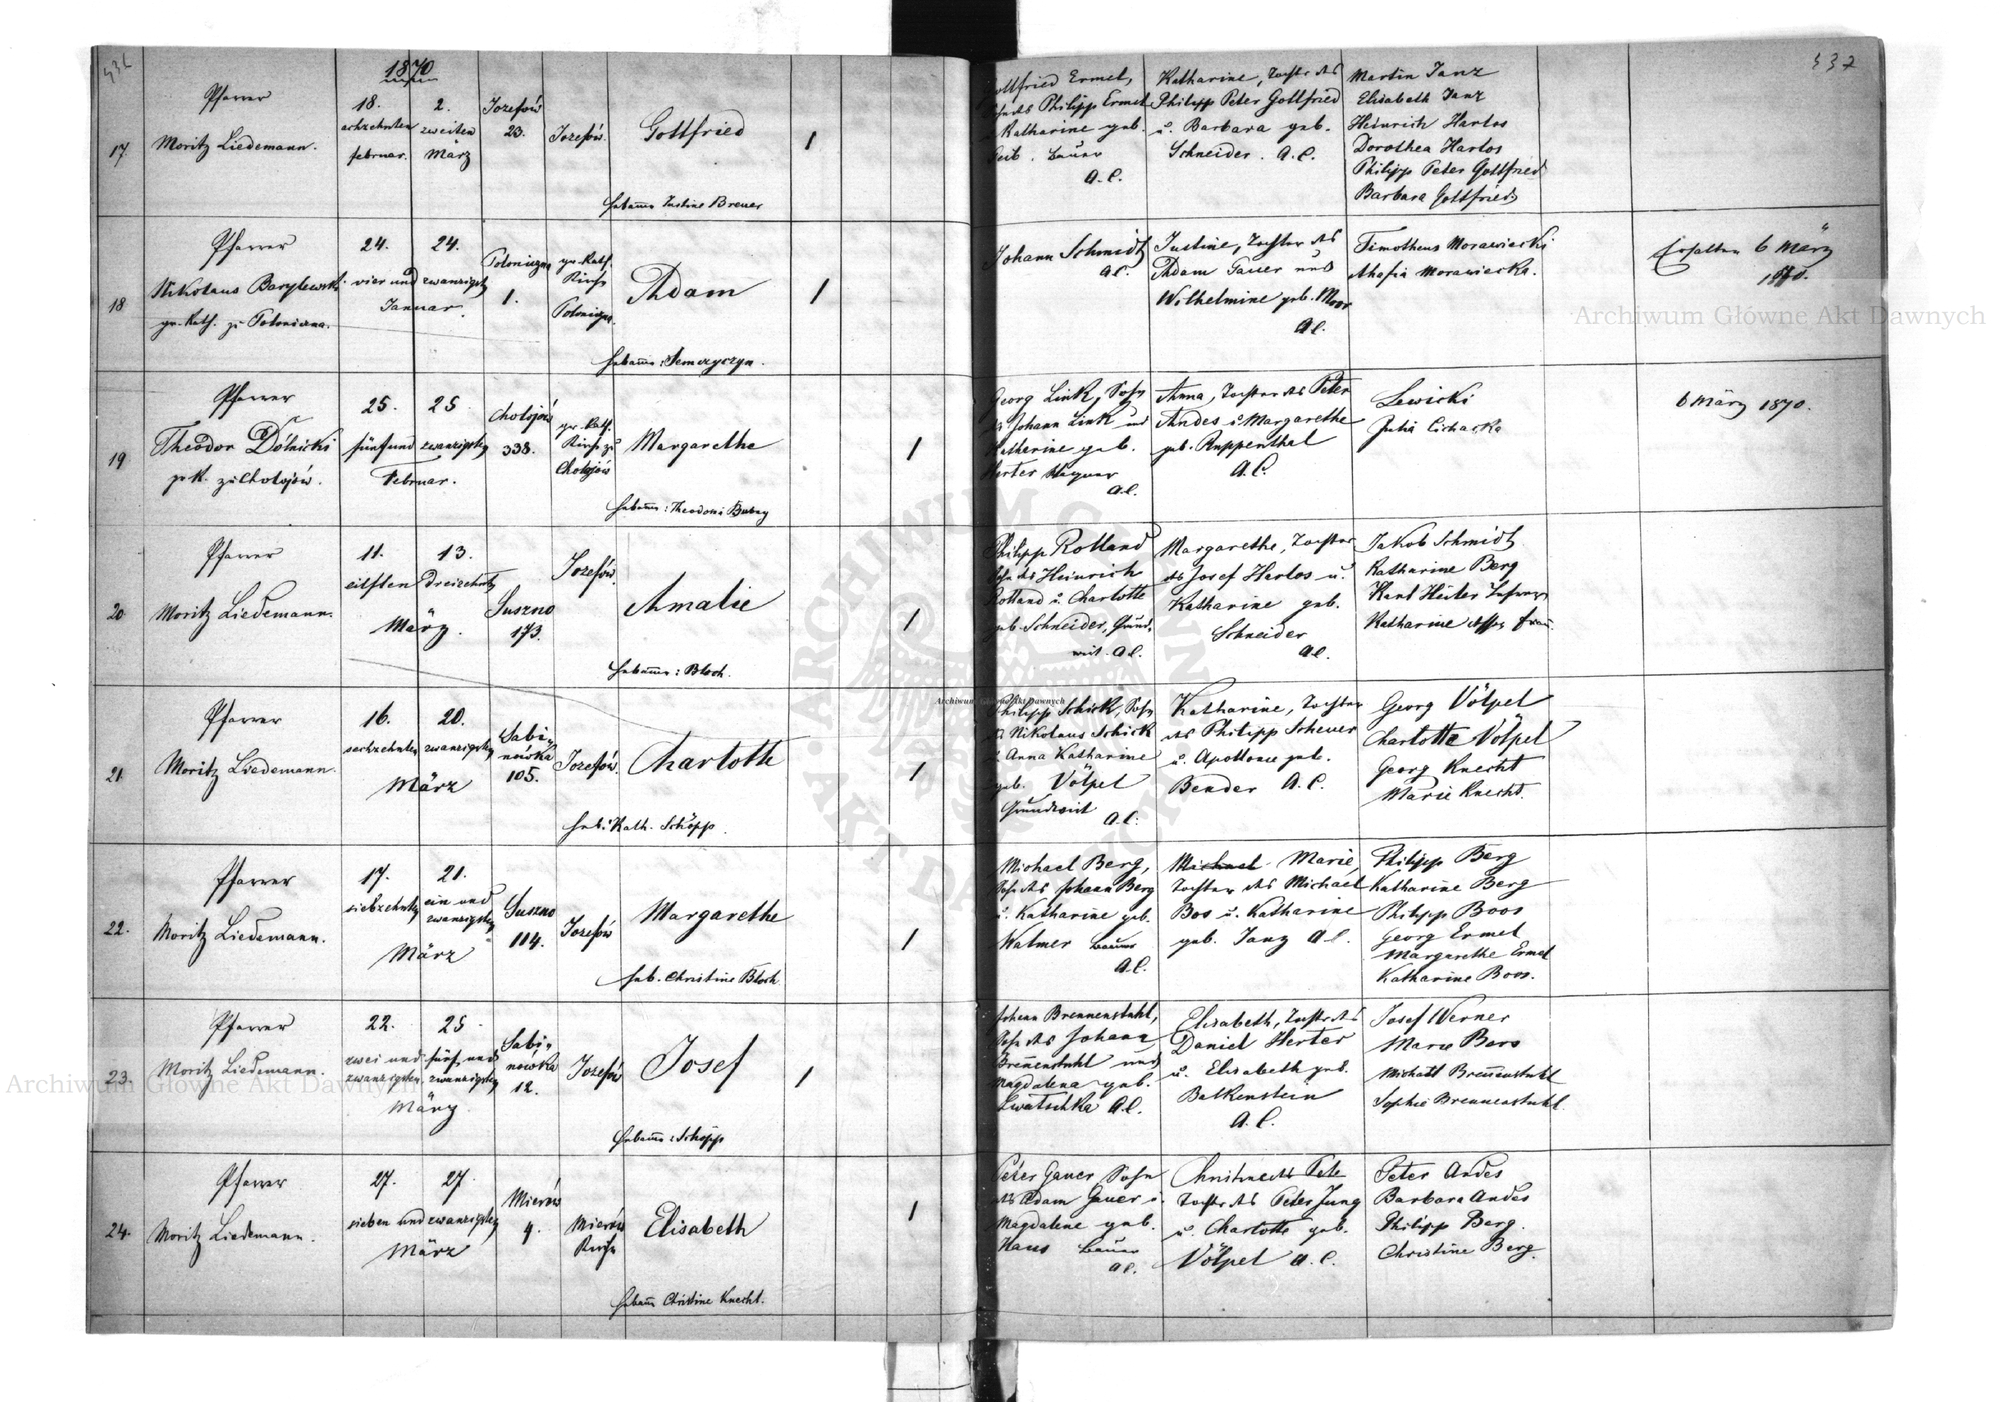 1870
17.
Pfarrer
Moritz Liedemann.
18.
achzehnten
februar.
2.
zweiten
März
Jozefów
23.
Jozefów.
Gottfried
1
Hebamme Justine Breuer
Gottfried Ermel,
Sohn des Philipp Ermel
Katharine geb.
Bauer
A.C.
Katharine, Tochter des
Philipp Peter Gottfried
u. Barbara geb.
Schneider. A.C.
Martin Janz
Elisabeth Janz
Heinrich Hartos
Dorothea Hartos
Philipp Peter Gottfried
Barbara Gottfried
537
18
Pfarrer
Nikolaus Barylewski
gr. Kath. zu Toloniczna.
24.
24.
vier und zwanzigsten
Januar.
1.
gr. Kath.
Kirche
Adam
1
Hebamme: Semczyszyn.
Johann Schmidt
A.C.
Justine, Tochter des
Adam Gauer und
Wilhelmine geb. Moor
A.C.
Timotheus Morawiecki
Ahafia Morawiecka.
Erhalten 6 März
1870.
19
Pfarrer
Theodor Dólnicki
gr K. zu Chotojów.
25.
25
fünfund zwanzigsten
Februar.
Chotojów
338.
gr. Kath.
Kirche zu
Chotojów
Margarethe
1
Hebamme: Theodosia
Georg Link, Sohn
des Johann Link und
Katherine geb.
Herter Wagner
A.C.
Anna, Tochter des Peter
Andes u Margarethe
geb. Ruppenthal
A.C.
Lewicki
Julia Cicharka
6 März 1870.
20
Pfarrer
Moritz Liedemann.
11.
13.
eilften
dreizehnten
März.
Suszno
173.
Jozefów.
Amalie
1
Hebamme: Bloch.
Philipp Rolland
Sohn des Heinrich
Rolland u. Charlotte
geb. Schneider, Grund.
wirt. A.C.
Margarethe, Tochter
des Josef Hartos u.
Katharine geb.
Schneider
A.C.
Jakob Schmidt
Katharine Berg
Karl Heiter
Katharine dessen Frau.
21.
Pfarrer
Moritz Liedemann.
16.
20.
sechzehnten
zwanzigsten
März
Sabi-
nówka
105.
Jozefów.
Charlotte
1
Heb. Kath. Schöpp.
Philipp Schick, Sohn
des Nikolaus Schick
u Anna Katharine
geb. Völpel
Grundwirt
A.C.
Katharine, Tochter
des Philipp Scheuer
u. Apollonie geb.
Bender A.C.
Georg Völpel
Charlotte Völpel
Georg Knecht
Marie Knecht.
22.
Pfarrer
Moritz Liedemann.
17.
21.
siebzehnten
ein und
zwanzigsten
März
Suszno
114.
Jozefów
Margarethe
1
Heb. Christine Bloch
Michael Berg,
Sohn des Johann Berg
u. Katharine geb.
Walmer Bauer
A.C.
Michael Marie,
Tochter des Michael
Bos u. Katharine
geb. Janz A.C.
Philipp Berg
Katharine Berg
Philipp Boos
Georg Ermel
Margarethe Ermel
Katharine Boos.
23.
Pfarrer
Moritz Liedemann.
22.
25.
zwei und
zwanzigsten
fünf und
zwanzigsten
März
Sabi-
nówka
12.
Jozefów
Josef
1
Hebamme: Schöpp
Johann Brennenstuhl,
Sohn des Johann
Brennenstuhl und
Magdalena geb.
Lwatschka A.C.
Elisabeth, Tochter des
Daniel Herter
u. Elisabeth geb.
Balkenstein
A.C.
Josef Werner
Marie Boos
Michael Brennenstuhl
Sophie Brennenstuhl
24.
Pfarrer
Moritz Liedemann.
27.
27
sieben und zwanzigsten
März
Mierów
4.
Mierów
Kirche
Elisabeth
1
Hebamme Christine Knecht.
Peter Gauer Sohn
des Adam Gauer u.
Magdalene geb.
Haus Bauer
A.C.
Tochter des Peter Jung
u. Charlotte geb.
Völpel A.C.
Peter Andes
Barbara Andes
Philipp Berg.
Christine Berg.
Archiwum Główne Akt Dawnych
Archiwum Główne Akt Dawnych
Archiwum Główne Akt Dawnych